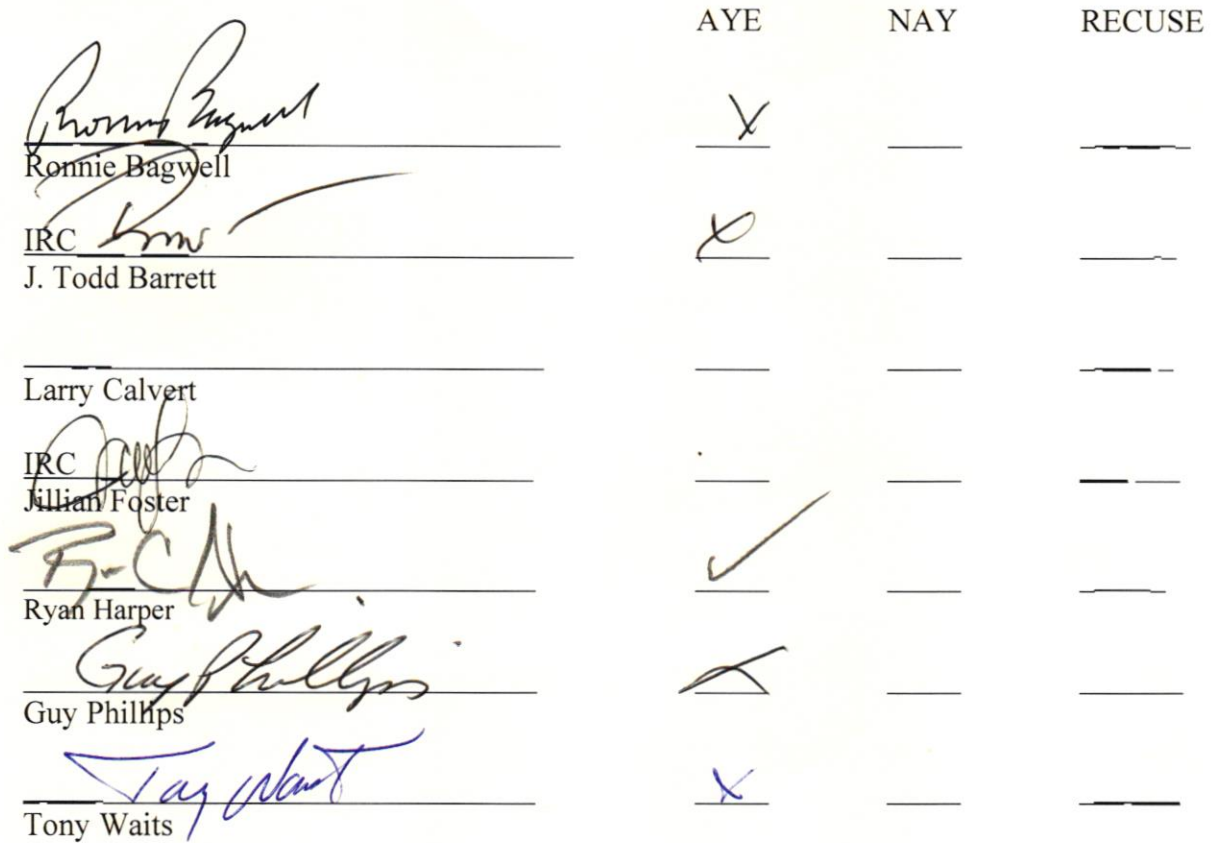 AYE NAY RECUSE
Ronnie Bagwell X
Ronnie Bagwell
IRC X
J. Todd Barrett
Larry Calvert
IRC
Jillian Foster
✓
Ryan Harper
Guy Phillips
Guy Phillips
Tony Waits X
Tony Waits